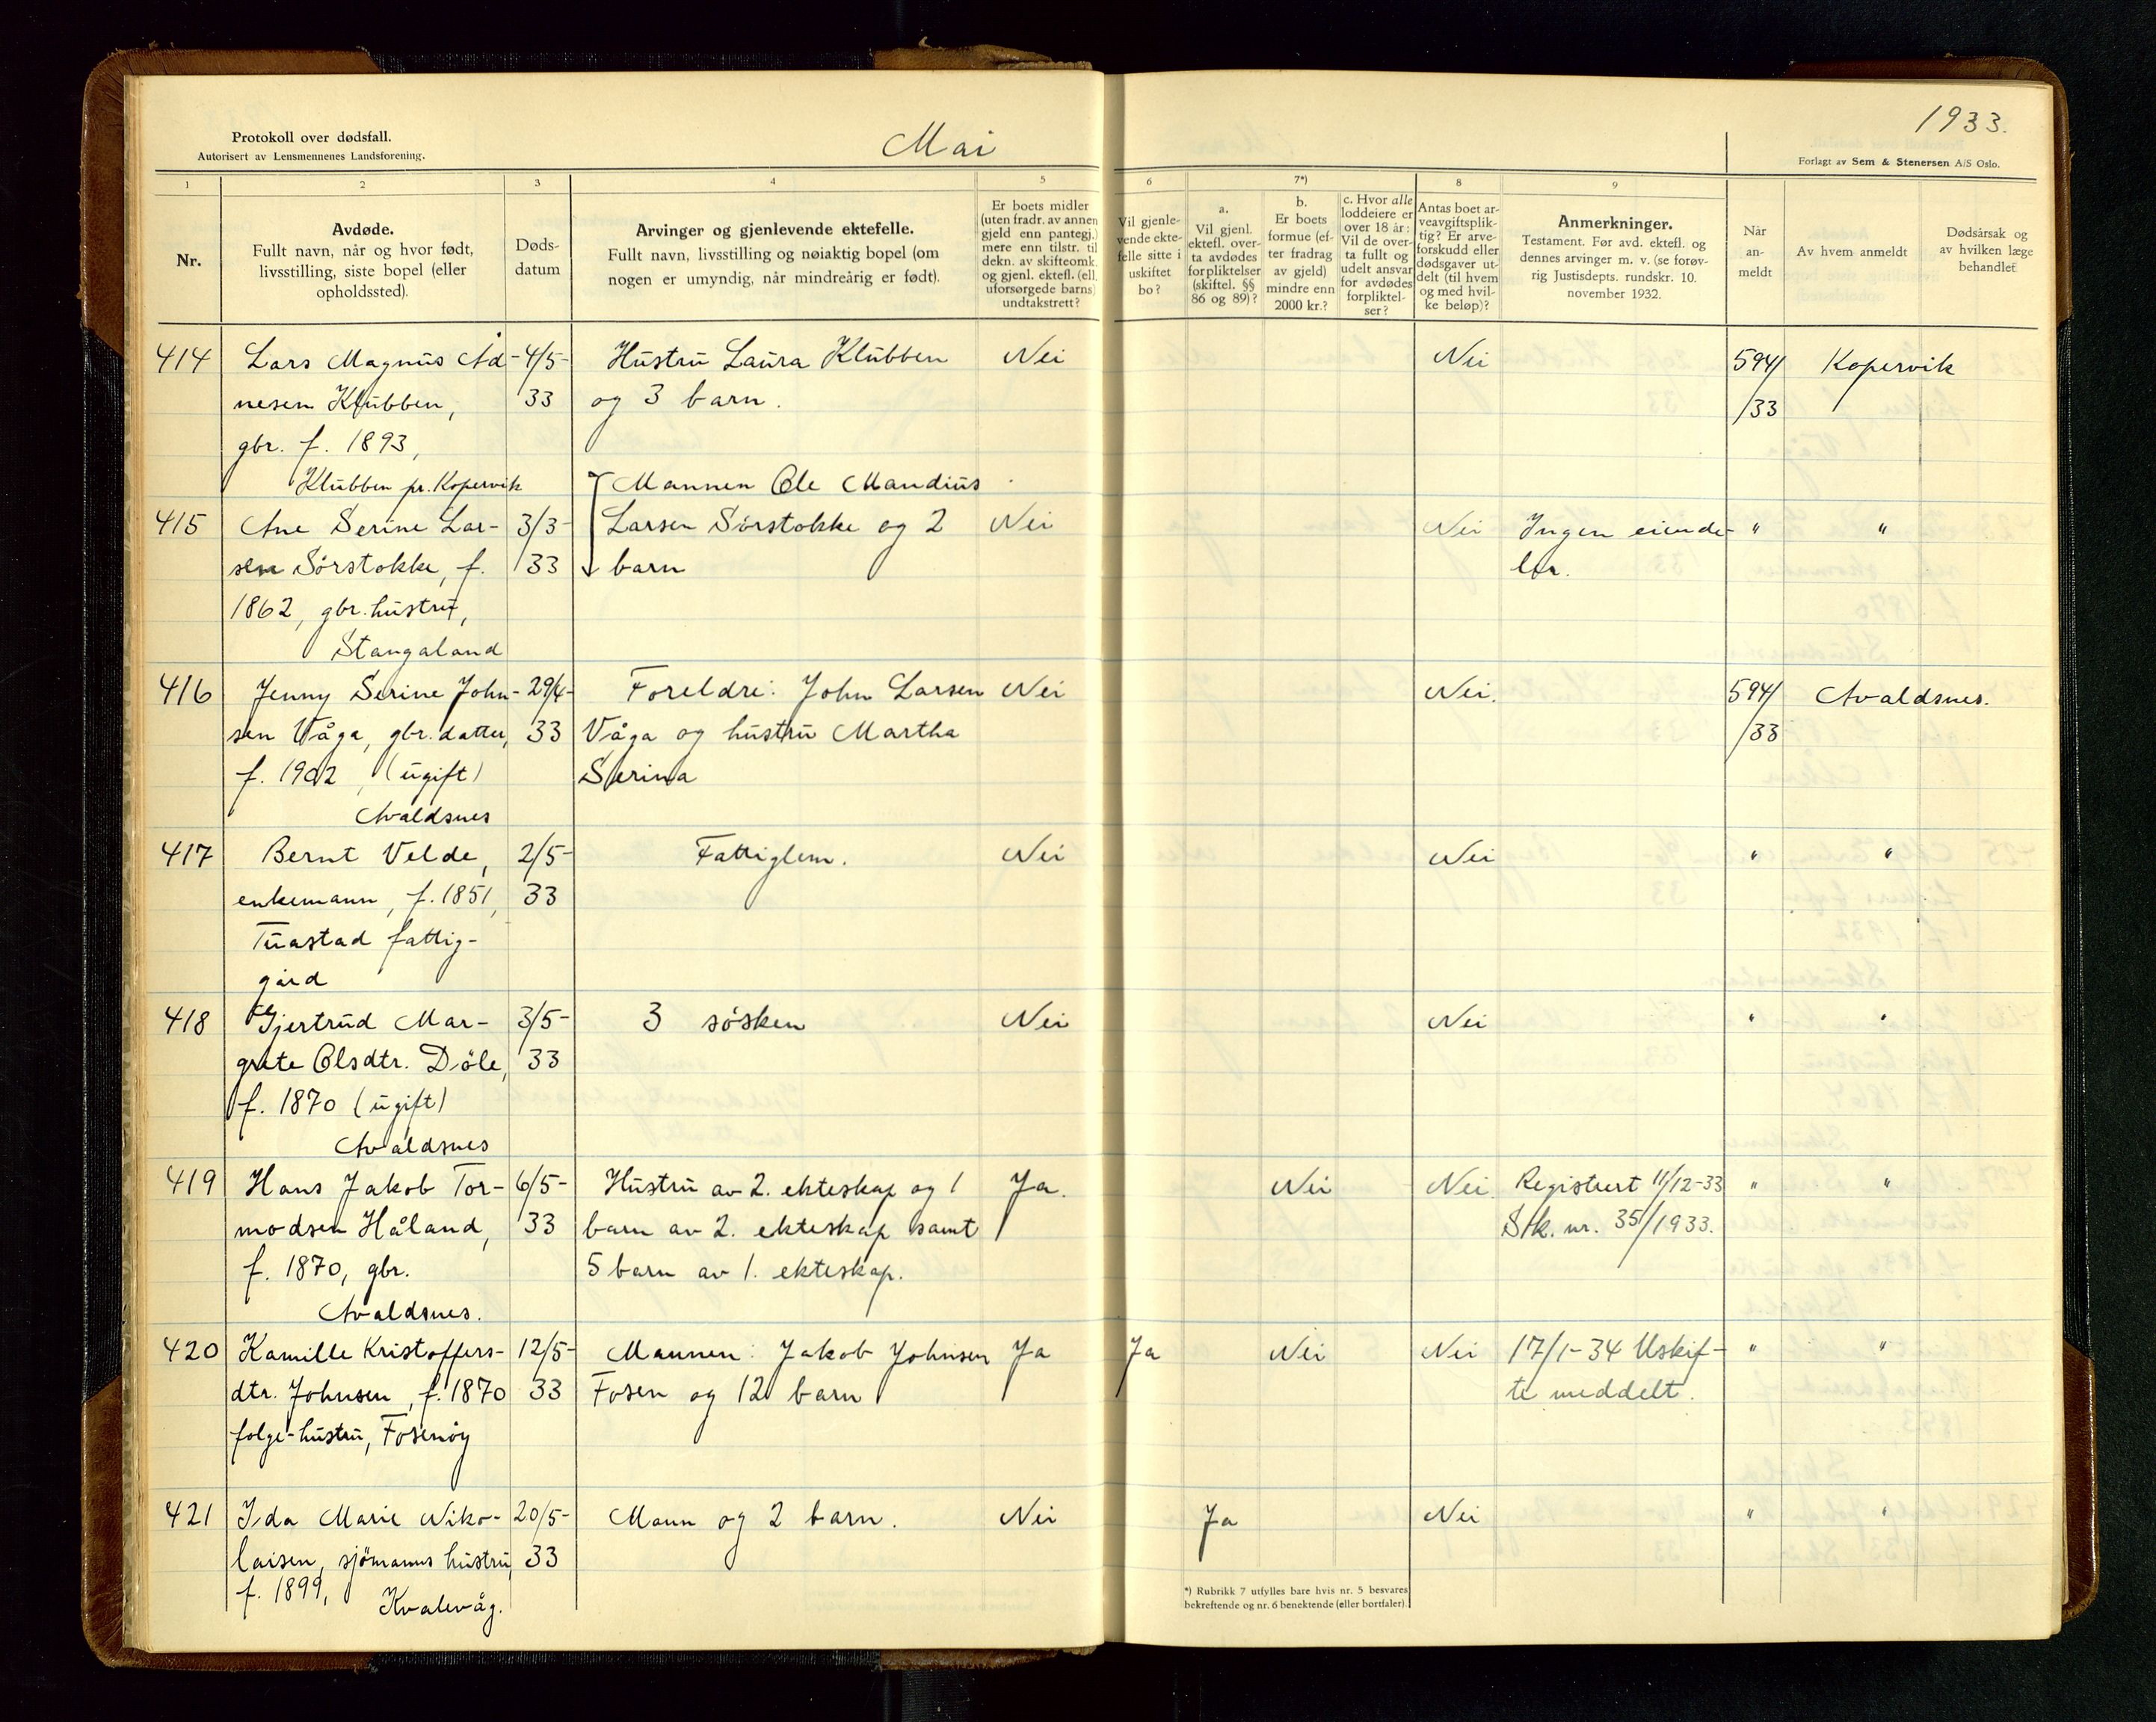 Protokoll over dødsfall.
Autorisert av Lensmennenes Landsforening.
Mai
1933.
Forlagt av Sem & Stenersen A/S Oslo.
1 2 3 4 5 6 7*) 8 9
Nr.
Avdøde.
Fullt navn, når og hvor født,
livsstilling, siste bopel (eller
opholdssted).
Døds-
datum
Arvinger og gjenlevende ektefelle.
Fullt navn, livsstilling og nøiaktig bopel (om
nogen er umyndig, når mindreårig er født).
Er boets midler
(uten fradr. av annen
gjeld enn pantegj.)
mere enn tilstr. til
dekn. av skifteomk.
og gjenl. ektefl. (ell.
uforsørgede barns)
undtakstrett?
Vil gjenle-
vende ekte-
felle sitte i
uskiftet
bo?
a.
Vil gjenl.
ektefl. over-
ta avdødes
forpliktelser
(skiftel. §§
86 og 89)?
b.
Er boets
formue (ef-
ter fradrag
av gjeld)
mindre enn
2000 kr.?
c. Hvor alle
loddeiere er
over 18 år:
Vil de over-
ta fullt og
udelt ansvar
for avdødes
forpliktel-
ser?
Antas boet ar-
veavgiftsplik-
tig? Er arve-
forskudd eller
dødsgaver ut-
delt (til hvem
og med hvil-
ke beløp)?
Anmerkninger.
Testament. Før avd. ektefl. og
dennes arvinger m. v. (se forøv-
rig Justisdepts. rundskr. 10.
november 1932.
Når
an-
meldt
Av hvem anmeldt
Dødsårsak og
av hvilken læge
behandlet
414 Lars Magnus Åd- 4/5- Hustru Laura Klubben Nei Nei 594/ Kopervik
nesen Klubben, 33 og 3 barn. /33
gbr. f. 1893,
Klubben pr. Kopervik Mannen Ole Mandius
415 Ane Serine Lar- 3/3- Larsen Sörstokke og 2 Nei Nei Ingen eiende- " "
sen Sörstokke, f. 33 barn ler.
1862, gbr. hustru,
Stangaland
416 Jenny Serine John- 29/4- Foreldre: John Larsen Nei Nei. 594/ Avaldsnes.
sen Våga, gbr. datter, 33 Våga og hustru Martha /33
f. 1902, (ugift) Serina
Avaldsnes
417 Bernt Velde, 2/5- Fattiglem. Nei Nei " "
enkemann, f. 1851, 33
Tuastad fattig-
gård
418 Gjertrud Mar- 3/5- 3 søsken Nei Nei " "
grete Olsdtr. Döle, 33
f. 1870 (ugift)
Avaldsnes
419 Hans Jakob Tor- 6/5- Hustru av 2. ekteskap og 1 Ja. Nei Nei Registrert 11/12-33 " "
modsen Håland, 33 barn av 2. ekteskap samt Stk. nr. 35/1933.
f. 1870, gbr. 5 barn av 1. ekteskap.
Avaldsnes.
420 Kamille Kristoffers- 12/5- Mannen: Jakob Johnsen Ja Ja Nei Nei 17/1-34 Uskif- " "
dtr. Johnsen, f. 1870 33 Fosen og 12 barn te meddelt.
folge-hustru, Fosenöy
421 Ida Marie Niko- 20/5- Mann og 2 barn. Nei Ja Nei " "
laisen, sjömanns hustru, 33
f. 1899,
Kvalevåg.
*) Rubrikk 7 utfylles bare hvis nr. 5 besvares
bekreftende og nr. 6 benektende (eller bortfaler).